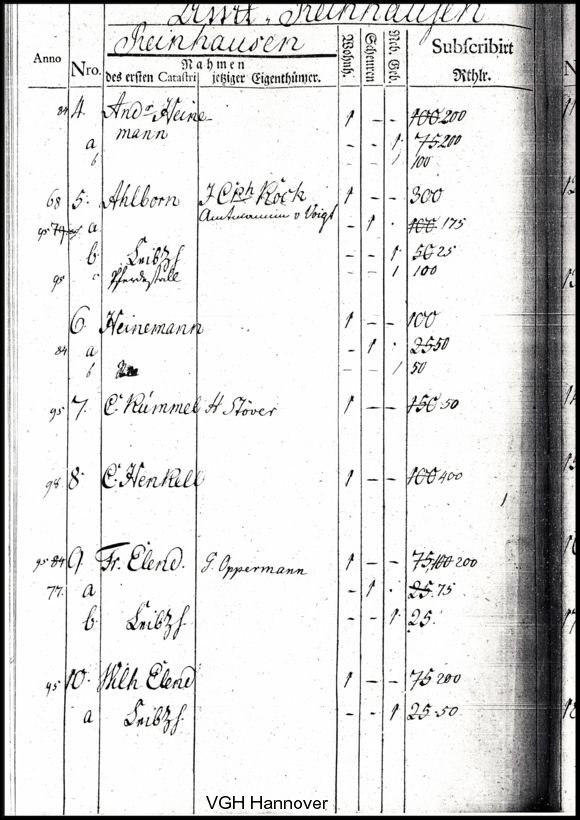 Amt. Reinhausen
Reinhausen
Anno Nro. Nahmen des ersten Catastri jetziger Eigenthümer. Wohnh. Scheuren Neb. Geb. Subscribirt Rthlr.
84 4. Andr Heine- 1 - - 100 200
mann
a - - 1 75 200
b - - 1 100
68 5. Ahlborn J Cph Köck 1 - - 300
Amtmannin v Voigt
95 79 a - 1 · 100 175
b Leibzh - - 1 50 25
95 c Pferdestall - - 1 100
6. Heinemann 1 - - 100
84 a - 1 · 25 50
b - - 1 50
95 7. C. Kümmel H Stöver 1 - - 150 50
98 8. C. Henkell 1 - - 100 400
95 84 9. Fr. Elend. G. Oppermann 1 - - 75, 100 200
77. a - 1 · 25. 75
b Leibzh - - 1 25.
95 10. Wilh Elend 1 - - 75 200
a Leibzh - - 1 25 50
VGH Hannover